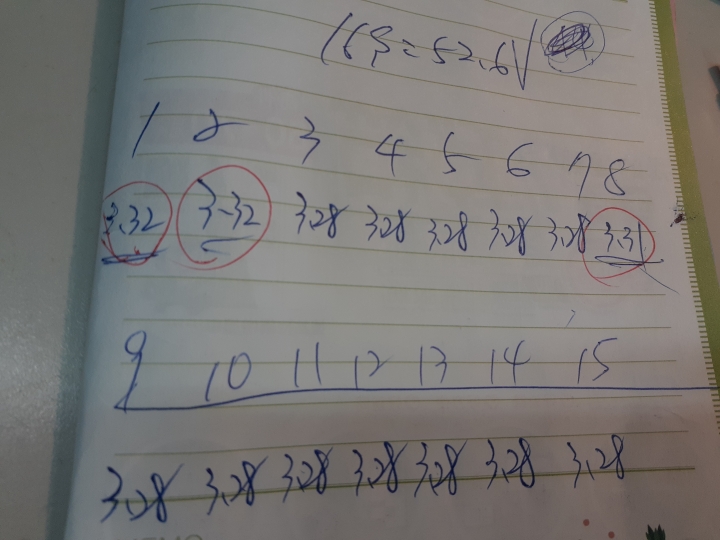 16S=52.6V
1 2 3 4 5 6 7 8
3.32 3.32 3.28 3.28 3.28 3.28 3.28 3.31
9 10 11 12 13 14 15
3.28 3.28 3.28 3.28 3.28 3.28 3.28